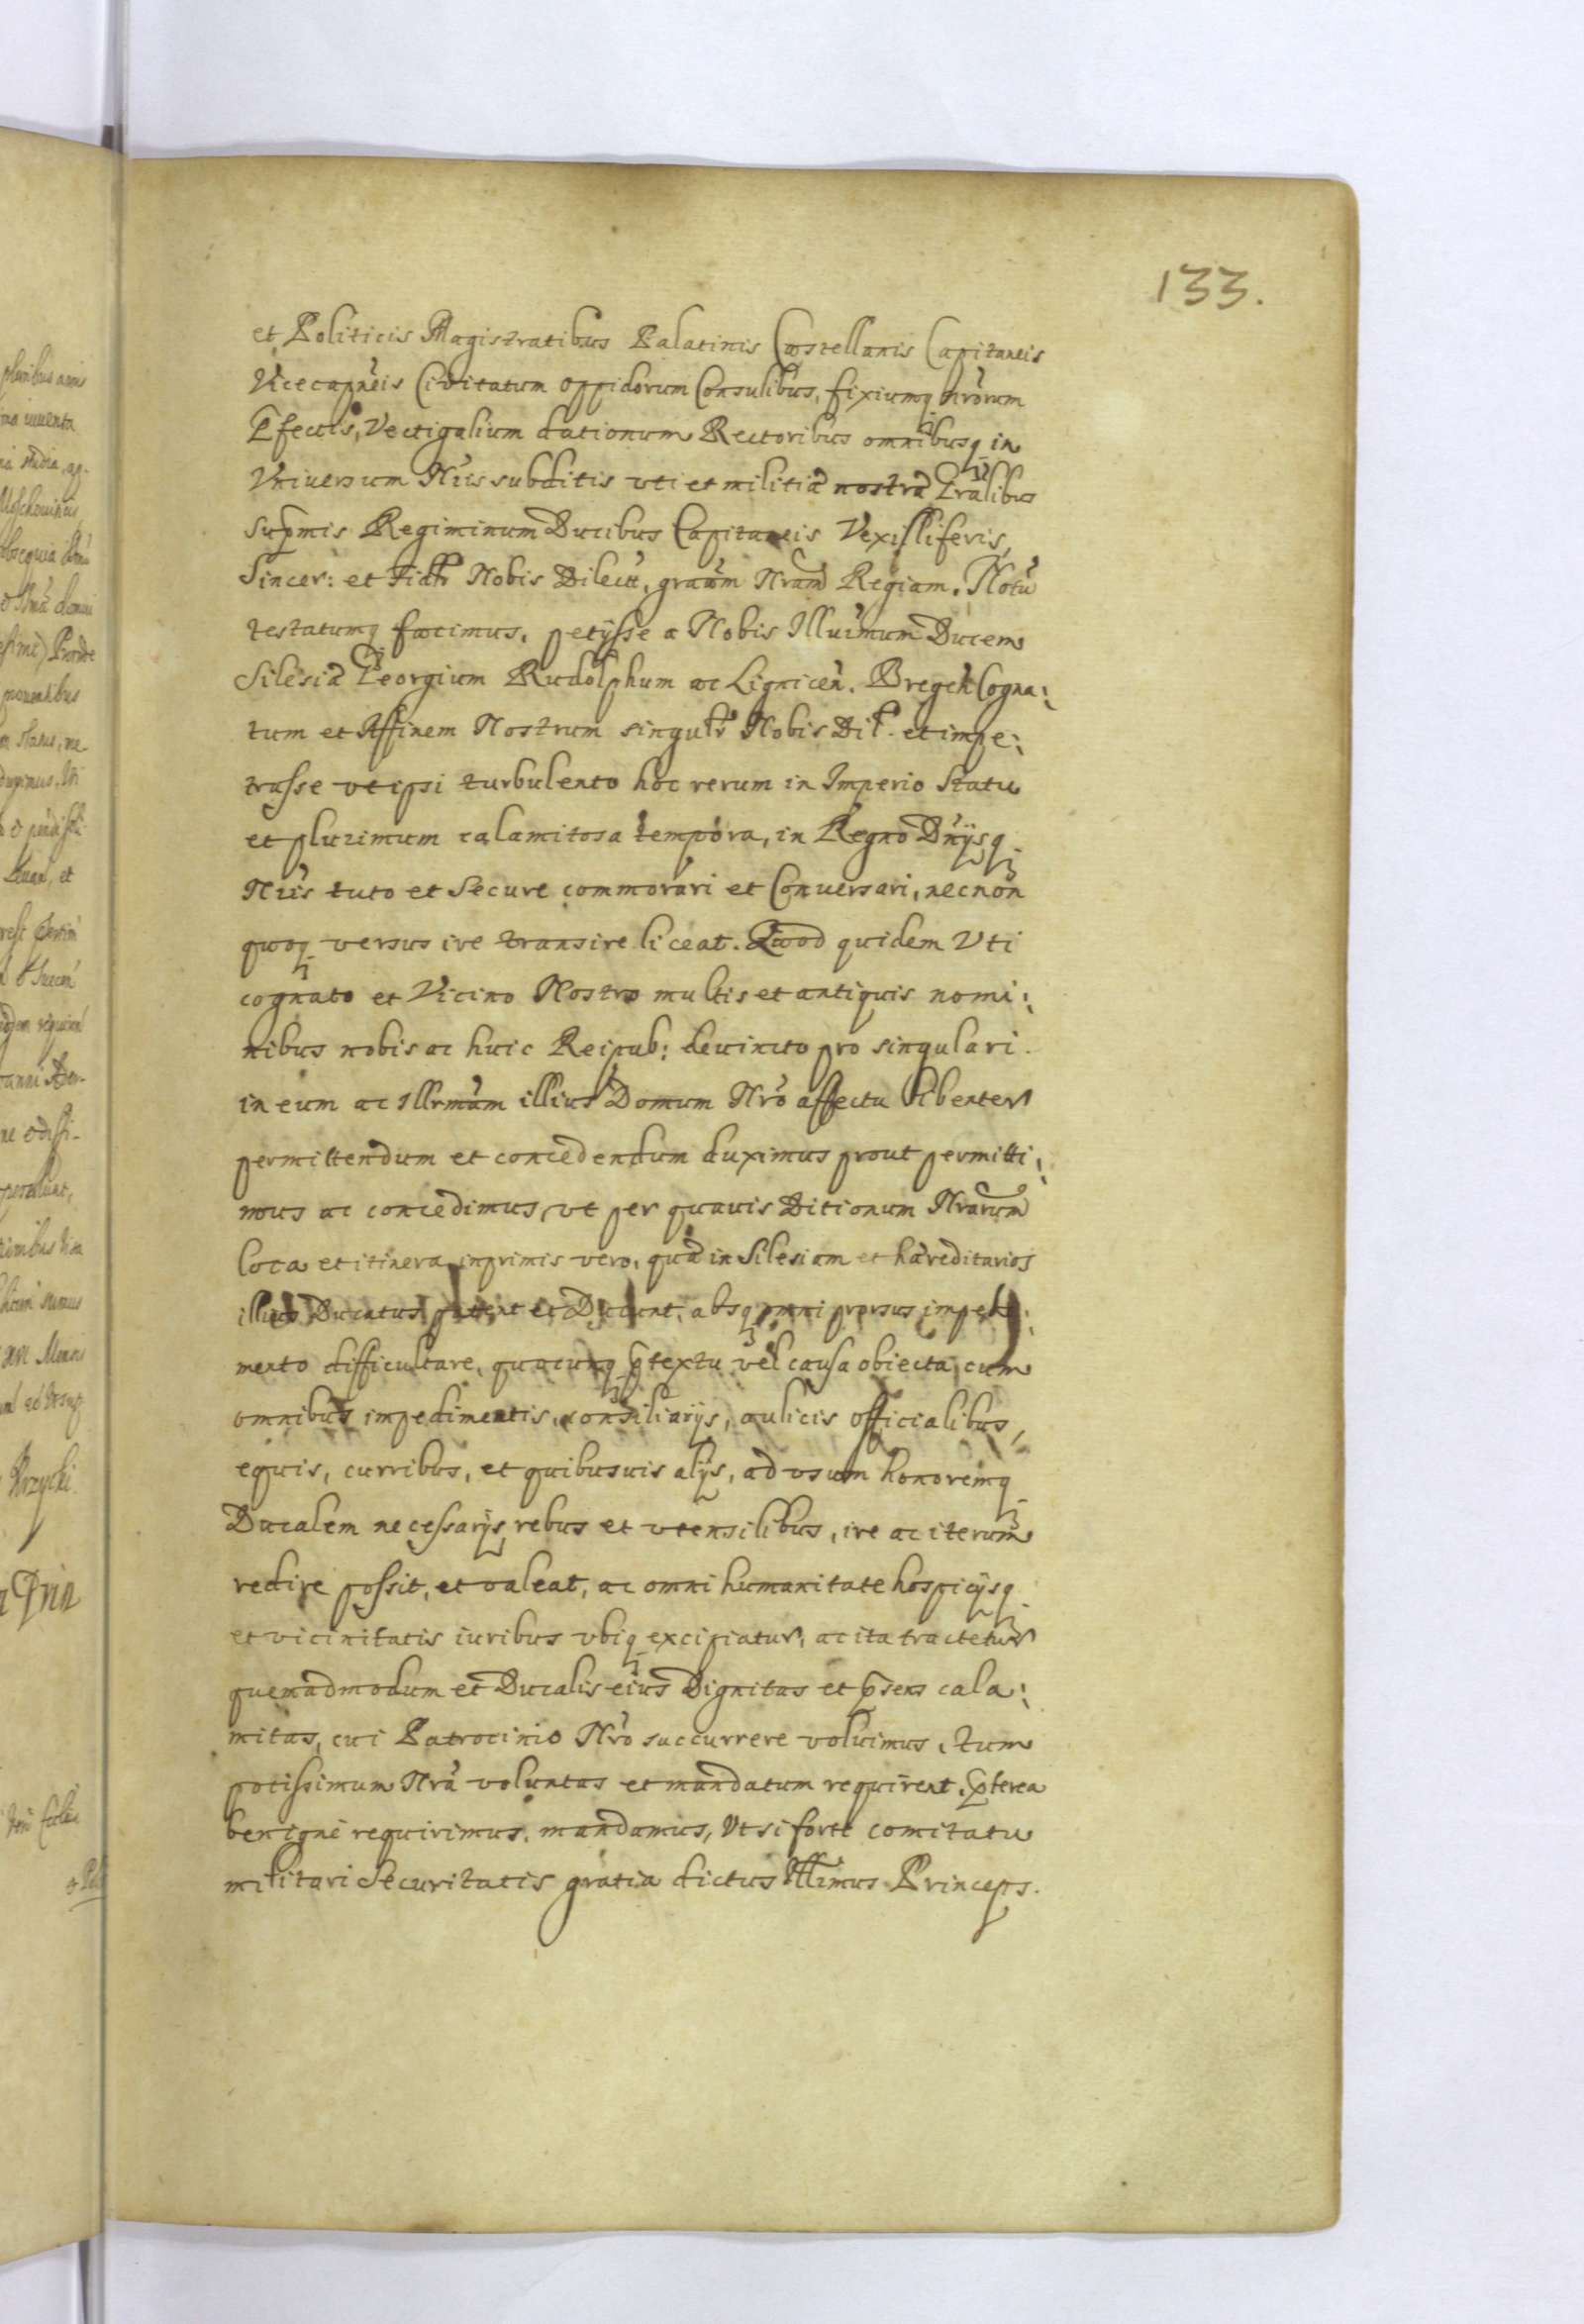 133.
et Politicis Magistratibus Palatinis Castellanis Capitaneis
Vicecapneis Civitatum oppidorum Consulibus, fixiumq nrorum
Pfectis, Vectigalium dationum Rectoribus omnibusq in
Vniversum Nris subditis vti et militiæ nostræ Gralibus
Supmis Regiminum Ducibus Capitaneis Vexilliferis,
Sincer: et Fidlr Nobis Dilect, gratam Nram Regiam. Notu
testatumq facimus, petysse a Nobis Illurmum Ducem
Silesiæ Georgium Rudolphum ac Lignicen. Bregen Cogna:
tum et Affinem Nostrum singulr Nobis Dil. et impe:
trasse vt ipsi turbulento hoc rerum in Imperio Statu
et plurimum calamitosa tempora, in Regno Dnijsq
Nris tuto et Secure commorari et Conversari, necnon
quoq versus ire transire liceat. Quod quidem Vti
cognato et Vicino Nostro multis et antiquis nomi:
nibus nobis ac huic Reipub: devincto pro singulari
in eum ac Illrmam illius Domum Nro affectu libenter
permittendum et concedendum duximus prout permitti:
mus ac concedimus, vt per quavis Ditionum Nrarum
loca et itinera inprimis vero, quæ in Silesiam et hæreditarios
illius Ducatus patent et Ducunt, absq omni prorsus impedi:
mento difficultare, quacunq ptextu vel causa obiecta, cum
omnibus impedimentis, consiliarijs, aulicis officialibus,
equis, curribus, et quibusuis alijs, ad vsum honoremq
Ducalem necessarijs rebus et vtensilibus, ire ac iterum
redire possit, et valeat, ac omni humanitate hospicijsq
et vicinitatis iuribus vbiq excipiatur, ac ita tractetur
quemadmodum et Ducalis eius Dignitas et psens cala:
mitas, cui Patrocinio Nro succurrere voluimus, tum
potissimum Nra voluntas et mandatum requirent. Pterea
benigne requirimus, mandamus, Vt si forte comitatu
militari Securitatis gratia dictus Illimus Princeps.